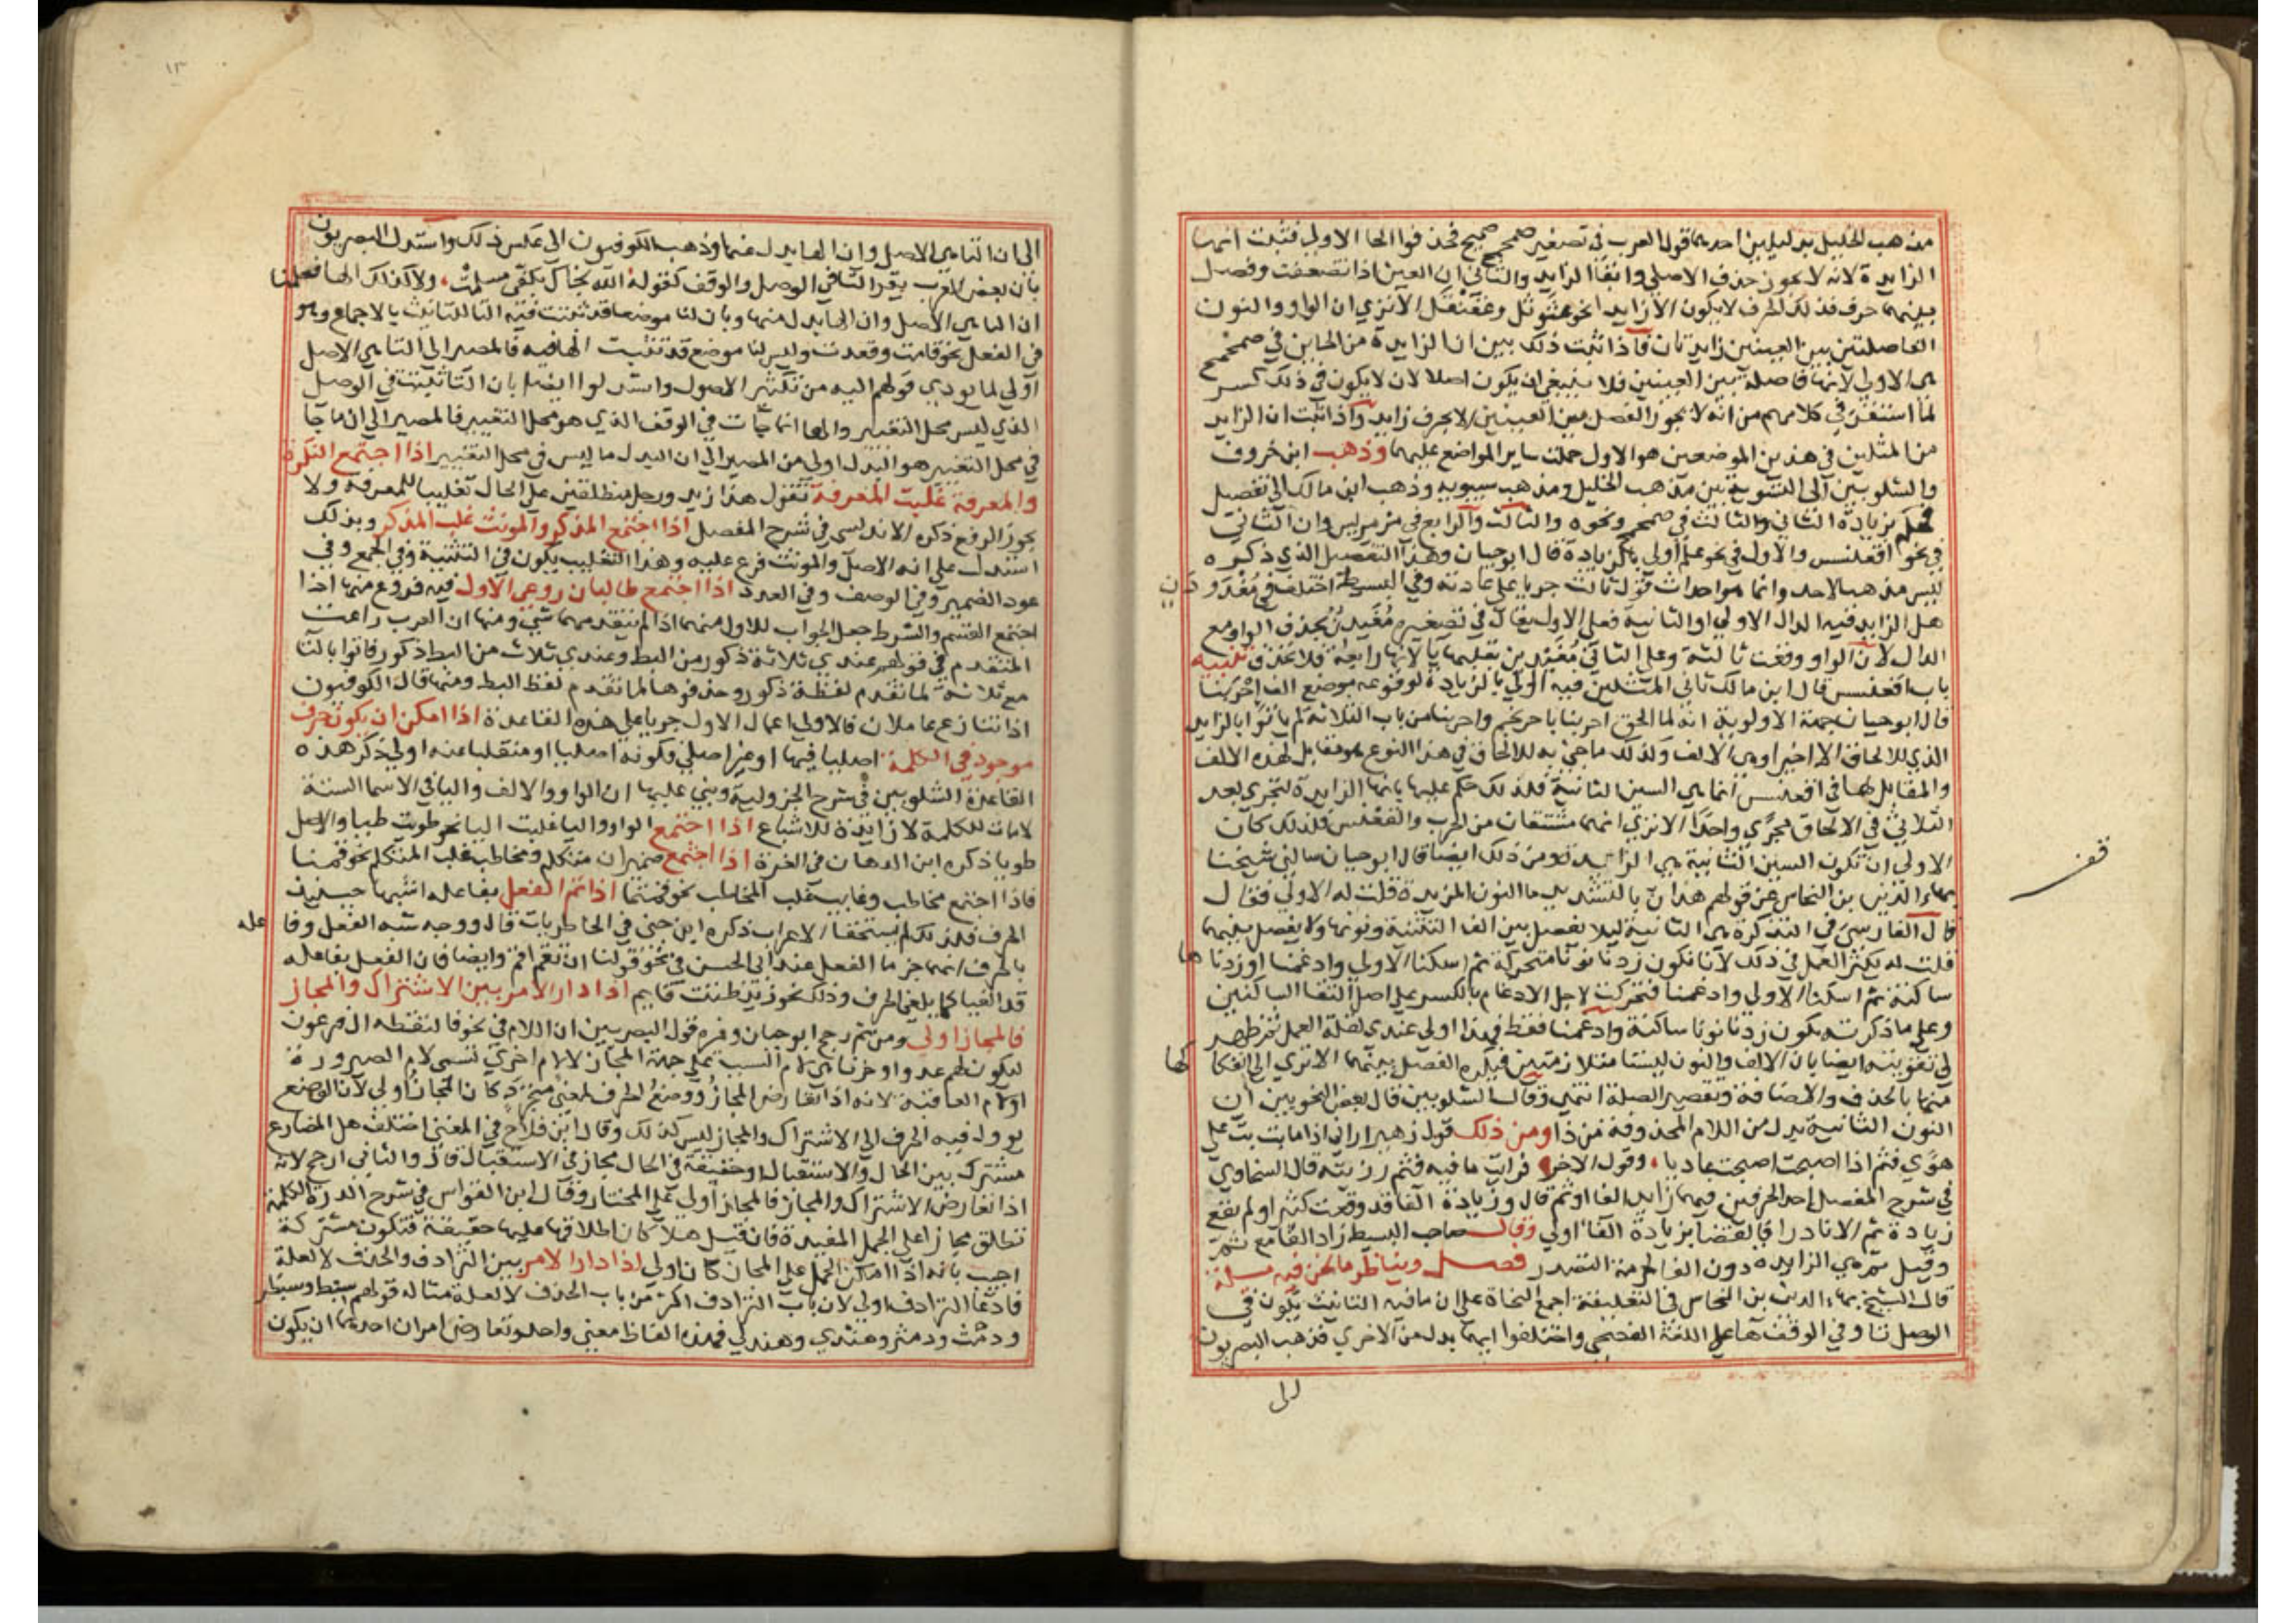 مذهب الخليل بدليلين احدهما قول العرب في تصغير صمحمح صميمح فحذفوا الحا الاولي فثبت انها
الزايدة لانه لا يجوز حذف الاصلي وابقا الزايد والثاني ان العين اذا تضعفت وفصل
بينهما حرف فذلك الحرف لا يكون الا زايدا نحو عثوثل وعقنقل الا تري ان الواو والنون
الفاصلتين بين العينين زايدتان فاذا ثبت ذلك تبين ان الزايدة من الحاين في صمحمح
هي الاولي لانها فاصلة بين العينين فلا ينبغي ان يكون اصلا لان لا يكون في ذلك كسر
لما استقر في كلامهم من انه لا يجوز الفصل بين العينين الا بحرف زايد واذا ثبت ان الزايد
من المثلين في هذين الموضعين هو الاول حملت ساير المواضع عليهما وذهب ابن خروف
والشلوبين الى التسوية بين مذهب الخليل ومذهب سيبويه وذهب ابن مالك الى تفصيل
فحكم بزيادة الثاني والثالث في صمحمح ونحوه والثالث والرابع في مرمريس وان الثاني
في نحو اقعنسس والاول في نحو علم اولي بالزيادة قال ابو حيان وهذا التفصيل الذي ذكره
ليس مذهبا لاحد وانما هو احداث قول ثالث جريا على عادته وفي البسيط اختلف في مغدودن
هل الزايد فيه الدال الاولي او الثانية فعلى الاول يقال في تصغيره مغيدن بحذف الواو مع
الدال لان الواو وقعت ثالثة وعلى الثاني مغيدين بقلبها يا لانها رابعة فلا تحذف تنبيه
باب اقعنسس قال ابن مالك ثاني المثلين فيه اولي بالزيادة لوقوعه موضع الف احرنبا
قال ابو حيان جهة الاولوية انه لما الحق احرنبا باحرنجم واحرنبا من باب الثلاثة لم ياتوا بالزايد
الذي للالحاق الا اخيرا وهي الالف ولذلك ما جيء به للالحاق في هذا النوع هو مقابل لهذه الالف
والمقابل لها في اقعنسس انما هي السين الثانية فلذلك حكم عليها بانها الزايدة لتجري بعد
الثلاثي في الالحاق مجري واحدا الا تري انهما مشتقان من الحرب والقعس فلذلك كان
الاولي ان تكون السين الثانية هي الزايدة ومن ذلك ايضا قال ابو حيان سالني شيخنا
بهاء الدين بن النحاس عن قولهم هذان بالتشديد ما النون المزيدة قلت له الاولي فقال
قال الفارسي في التذكرة هي الثانية ليلا يفصل بين الف التثنية ونونها ولا يفصل بينهما
قلت له يكثر العمل في ذلك لانا نكون زدنا نونا متحركة ثم اسكنا الاولي وادغمنا او زدناها
ساكنة ثم اسكنا الاولي وادغمنا فتحركت لاجل الادغام بالكسر على اصل التقا الساكنين
وعلى ما ذكرته يكون زدنا نونا ساكنة وادغمنا فقط فهذا اولي عندي لقلة العمل ثم ظهر
لي تقويته ايضا بان الالف والنون ليستا متلازمتين فيكره الفصل بينهما الا تري الى انفكاكها
منها بالحذف والاضافة وتقصير الصلة انتهي وقال الشلوبين قال بعض النحويين ان
النون الثانية بدل من اللام المحذوفة من ذا ومن ذلك قول زهير اراني اذا ما بت بت على
هوي فثم اذا اصبحت اصبحت غاديا وقول الاخر فرايت ما فيه فثم رزيته قال السخاوي
في شرح المفصل احد الحرفين فيهما زايد الفا او ثم قال وزيادة الفا قد وقعت كثيرا ولم يقع
زيادة ثم الا نادرا فالقضا بزيادة الفا اولي وقال صاحب البسيط زاد الفا مع ثم
وقيل ثم هي الزايدة دون الفا لحرمة التصدر فصل ويناظر ما نحن فيه مسلة
قال الشيخ بهاء الدين بن النحاس في التعليقة اجمع النحاة على ان ما فيه التانيث يكون في
الوصل تا وفي الوقف ها على اللغة الفصحى واختلفوا ايهما بدل من الاخري فذهب البصريون
الى
قف
١٣
الى ان التا هي الاصل وان الها بدل عنها وذهب الكوفيون الى عكس ذلك واستدل البصريون
بان بعض العرب يقر التا في الوصل والوقف كقوله الله نجاك بكفي مسلمت ولا كذلك الها فعلمنا
ان التا هي الاصل وان الها بدل منها وبان لنا موضعا قد ثبتت فيه التا للتانيث بالاجماع وهو
في الفعل نحو قامت وقعدت وليس لنا موضع قد ثبتت الها فيه فالمصير الى التا هي الاصل
اولي لما يودي قولهم اليه من تكثير الاصول واستدلوا ايضا بان التا ثبتت في الوصل
الذي ليس محل التغيير والها انما جات في الوقف الذي هو محل التغيير فالمصير الى ان ما جا
في محل التغيير هو البدل اولي من المصير الى ان البدل ما ليس في محل التغيير اذا اجتمع النكرة
والمعرفة غلبت المعرفة تقول هذا زيد ورجل منطلقين على الحال تغليبا للمعرفة ولا
يجوز الرفع ذكره الاندلسي في شرح المفصل اذا اجتمع المذكر والمونث غلب المذكر وبذلك
استدل على انه الاصل والمونث فرع عليه وهذا التغليب يكون في التثنية وفي الجمع وفي
عود الضمير وفي الوصف وفي العدد اذا اجتمع طالبان روعي الاول فيه فروع منها اذا
اجتمع القسم والشرط جعل الجواب للاول منهما اذا لم يتقدمهما شي ومنها ان العرب راعت
المتقدم في قولهم عندي ثلاثة ذكور من البط وعندي ثلاث من البط ذكور فاتوا بالتا
مع ثلاثة لما تقدم لفظة ذكور وحذفوها لما تقدم لفظ البط ومنها قال الكوفيون
اذا تنازع عاملان فالاولي اعمال الاول جريا على هذه القاعدة اذا امكن ان يكون حرف
موجود في الكلمة اصليا فيها او غير اصلي فكونه اصليا او منقلبا عنه اولي ذكر هذه
القاعدة الشلوبين في شرح الجزولية وبني عليها ان الواو والالف واليا في الاسما الستة
لامات للكلمة لا زايدة للاشباع اذا اجتمع الواو واليا غلبت اليا نحو طويت طيا والاصل
طويا ذكره ابن الدهان في الغرة اذا اجتمع ضميران متكلم ومخاطب غلب المتكلم نحو قمنا
فاذا اجتمع مخاطب وغايب غلب المخاطب نحو قمتما اذا تم الفعل بفاعله اشبها حينيذ
الحرف فلذلك لم يستحقا الاعراب ذكره ابن جني في الخاطريات قال ووجه شبه الفعل وفاعله
بالحرف انهما جزما الفعل عند ابي الحسن في نحو قولنا ان تقم اقم وايضا فان الفعل بفاعله
قد الغيا كما يلغي الحرف وذلك نحو زيد ظننت قايم اذا دار الامر بين الاشتراك والمجاز
فالمجاز اولي ومن ثم رجح ابو حيان وغيره قول البصريين ان اللام في نحو فالتقطه ال فرعون
ليكون لهم عدوا وحزنا هي لام السبب على جهة المجاز لا لام اخري تسمي لام الصيرورة
او لام العاقبة لانه اذا تعارض المجاز ووضع الحرف لمعنى متجرد كان المجاز اولي لان الوضع
يوول فيه الحرف الى الاشتراك والمجاز ليس كذلك وقال ابن فلاح في المغني اختلف هل المضارع
مشترك بين الحال والاستقبال او حقيقة في الحال مجاز في الاستقبال قال والثاني ارجح لانه
اذا تعارض الاشتراك والمجاز فالمجاز اولي على المختار وقال ابن القواس في شرح الدرة الكلمة
تطلق مجازا على الجمل المفيدة فان قيل هلا كان اطلاقها عليها حقيقة فتكون مشتركة
اجيب بانه اذا امكن الحمل على المجاز كان اولي اذا دار الامر بين الترادف والحذف لا لعلة
فادعا الترادف اولي لان باب الترادف اكثر من باب الحذف لا لعلة مثاله قولهم سبط وسبطر
ودمث ودمثر وهندي وهندكي فهذه الفاظ معني واحد وتعارض امران احدهما ان يكون